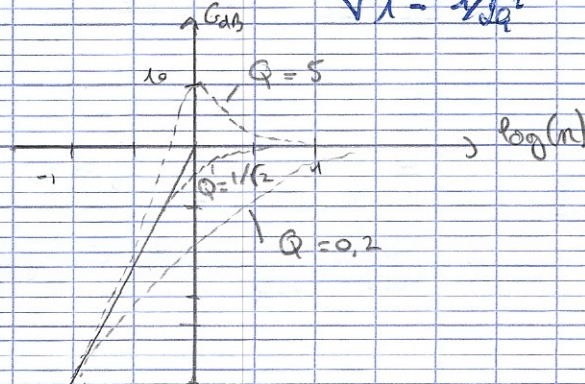 √1 - 1/2Q²
GdB
10
Q = 5
log(x)
-1
Q=1/√2
1
Q = 0,2